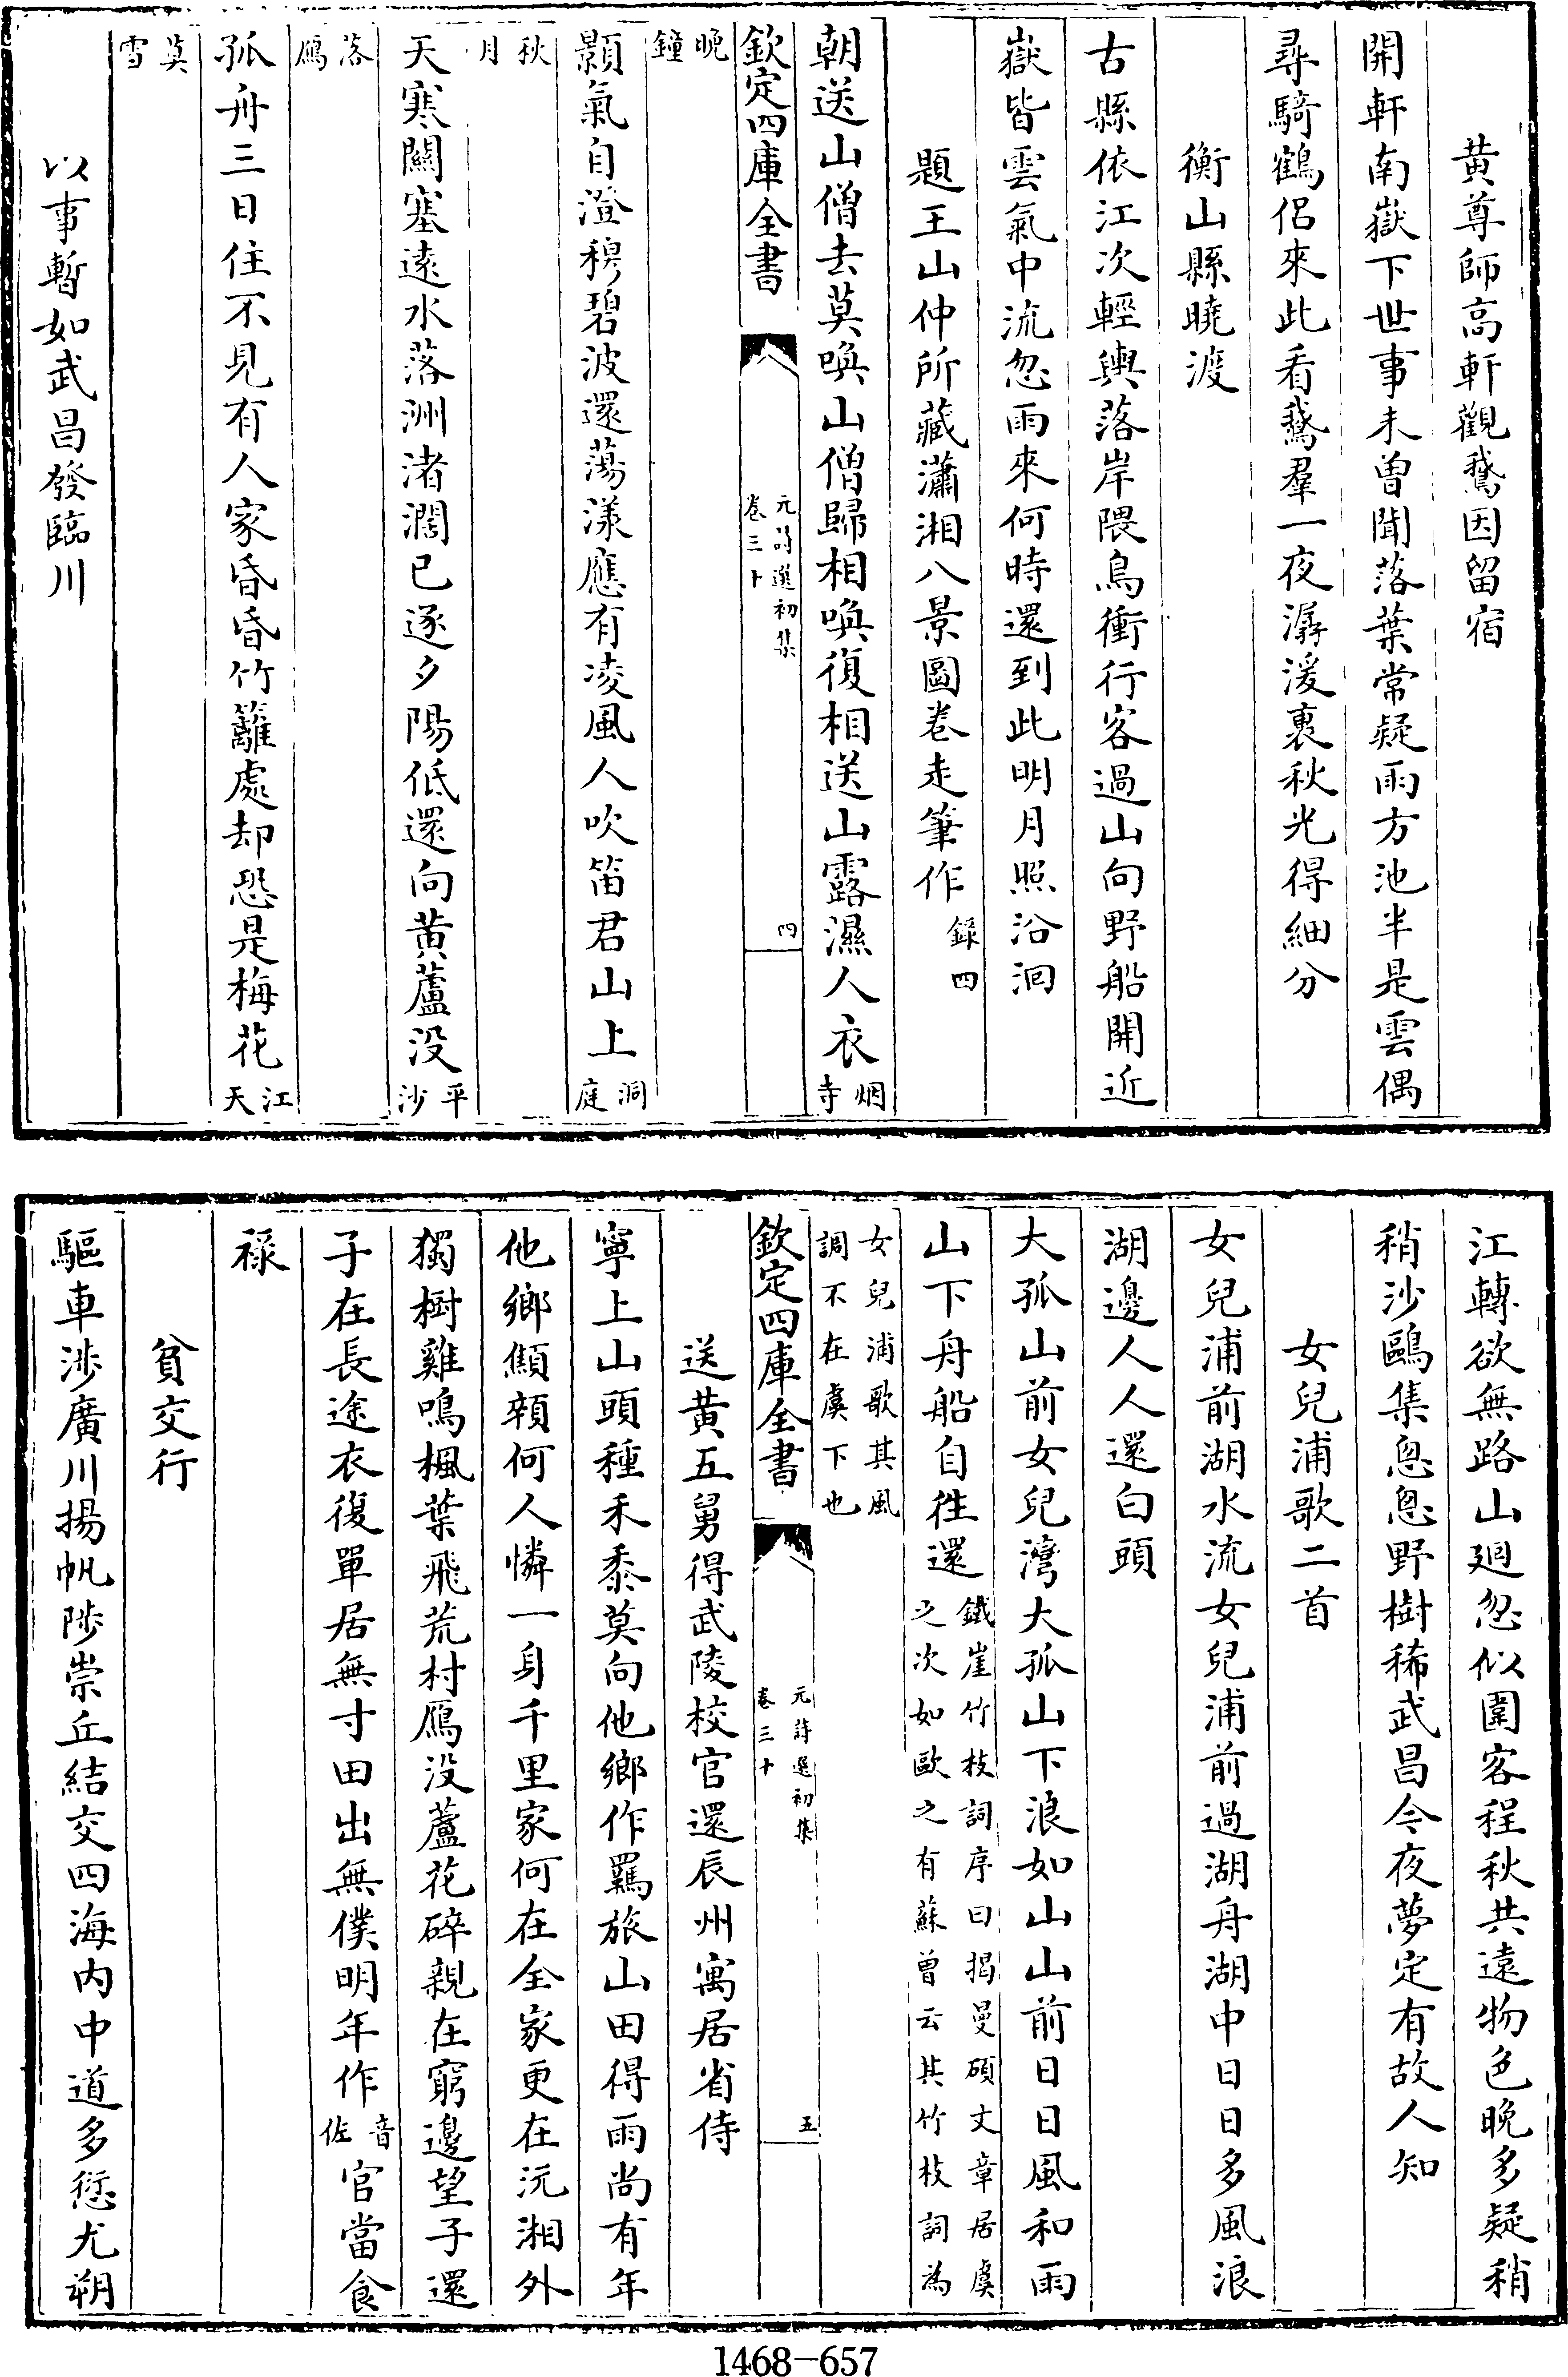 黄尊師高軒觀鵞因留宿
開軒南嶽下世事未曽聞落葉常疑雨方池半是雲偶
尋騎鶴侣來此看鵞羣一夜潺湲裏秋光得細分
衡山縣曉渡
古縣依江次輕輿落岸隈鳥衝行客過山向野船開近
嶽皆雲氣中流忽雨來何時還到此明月照沿洄
題王山仲所藏瀟湘八景圖卷走筆作錄四
朝送山僧去莫喚山僧歸相喚復相送山露濕人衣烟寺
欽定四庫全書
元詩選初集
卷三十
四
晚鐘
顥氣自澄穆碧波還蕩漾應有凌風人吹笛君山上洞庭
秋月
天寒關塞遠水落洲渚濶已逐夕陽低還向黄蘆没平沙
落鴈
孤舟三日住不見有人家昏昏竹籬處却恐是梅花江天
莫雪
以事暫如武昌發臨川
江轉欲無路山迴忽似圍客程秋共遠物色晚多疑稍
稍沙鷗集恩恩野樹稀武昌今夜夢定有故人知
女兒浦歌二首
女兒浦前湖水流女兒浦前過湖舟湖中日日多風浪
湖邊人人還白頭
大孤山前女兒灣大孤山下浪如山山前日日風和雨
山下舟船自徃還鐵崖竹枝詞序曰揭曼碩文章居虞
之次如歐之有蘇曾云其竹枝詞為
女兒浦歌其風
調不在虞下也
欽定四庫全書
元詩選初集
卷三十
五
送黄五舅得武陵校官還辰州寓居省侍
寧上山頭種禾黍莫向他鄉作羈旅山田得雨尚有年
他鄉顦顇何人憐一身千里家何在全家更在沅湘外
獨樹雞鳴楓葉飛荒村鴈没蘆花碎親在窮邊望子還
子在長途衣復單居無寸田出無僕明年作音佐官當食
禄
貧交行
驅車渉廣川揚帆陟崇丘結交四海内中道多愆尤朔
1468-657